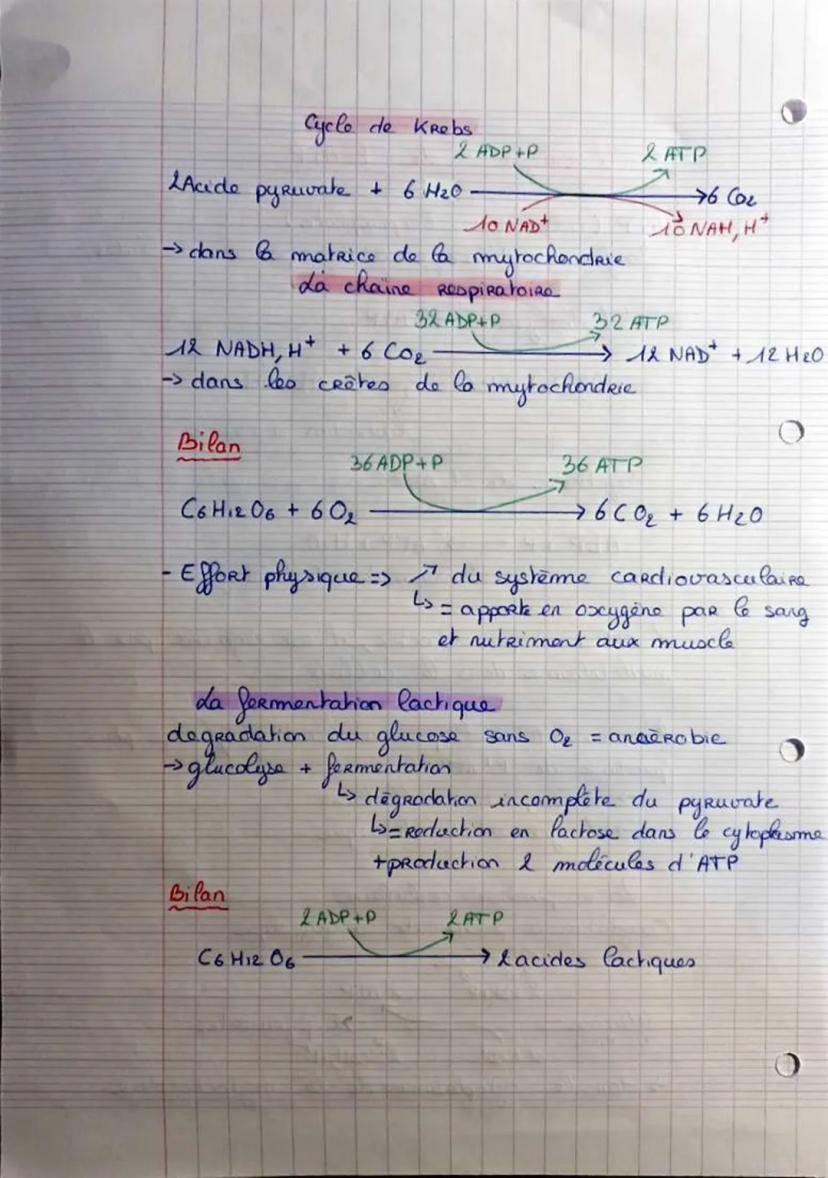 Cycle de KRebs
2 ADP+P 2 ATP
2Acide pyruvate + 6 H2O → 6 CO2
10 NAD+ 10 NAH, H+
→ dans la matrice de la mytochondrie
La chaîne RespiRatoire
32 ADP+P 32 ATP
12 NADH, H+ + 6 CO2 → 12 NAD+ + 12 H2O
→ dans les crêtes de la mytochondrie
Bilan
36 ADP+P 36 ATP
C6H12O6 + 6O2 → 6CO2 + 6H2O
- Effort physique => ↗ du système cardiovasculaire
↳ = apporte en oxygène par le sang
et nutriment aux muscle
La fermentation lactique
degradation du glucose sans O2 = anaérobie
→ glucolyse + fermentation
↳ dégradation incomplète du pyruvate
↳ = Reduction en lactose dans le cytoplasme
+ production 2 molécules d'ATP
Bilan
2 ADP+P 2 ATP
C6H12O6 → 2 acides lactiques